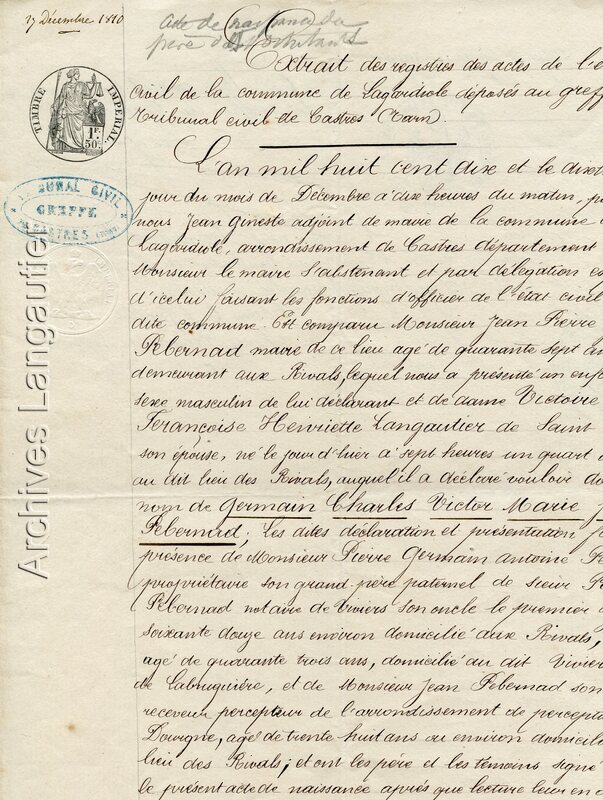 17 Décembre 1810
acte de naissance du
père des
Extrait des registres des actes de l'e
civil de la commune de Lagardiole déposés au greff
Tribunal civil de Castres Tarn.
TIMBRE IMPÉRIAL
1F. 50c.
TRIBUNAL CIVIL
GREFFE
CASTRES
L'an mil huit cent dix et le dixe
jour du mois de Décembre à dix heures du matin, p
nous Jean Gineste adjoint de maire de la commune
Lagardiole, arrondissement de Castres département
Monsieur le maire s'abstenant et par délégation
d'icelui faisant les fonctions d'officier de l'état civil
dite commune. Est comparu Monsieur Jean Pierre
Pebernad maire de ce lieu agé de quarante sept an
demeurant aux Rivals, lequel nous a présenté un enf
sexe masculin de lui déclarant et de dame Victoire
Françoise Henriette Langautier de Saint
son épouse, né le jour d'hier à sept heures un quart
au dit lieu des Rivals, auquel il a déclaré vouloir do
nom de Germain Charles Victor Marie
Pebernad. Les dites déclaration et présentation
présence de Monsieur Pierre Germain antoine Pe
propriétaire son grand-père paternel de sieur
Pebernad notaire de Viviers son oncle le premier
soixante douze ans environ domicilié aux Rivals,
agé de quarante trois ans, domicilié au dit Vivier
de Labruguière, et de Monsieur Jean Pebernad son
receveur percepteur de l'arrondissement de percepti
Dourgne, agés de trente huit ans ou environ domicil
lieu des Rivals; et ont les père et les témoins signé
le présent acte de naissance après que lecture leur en a
Archives Langautier